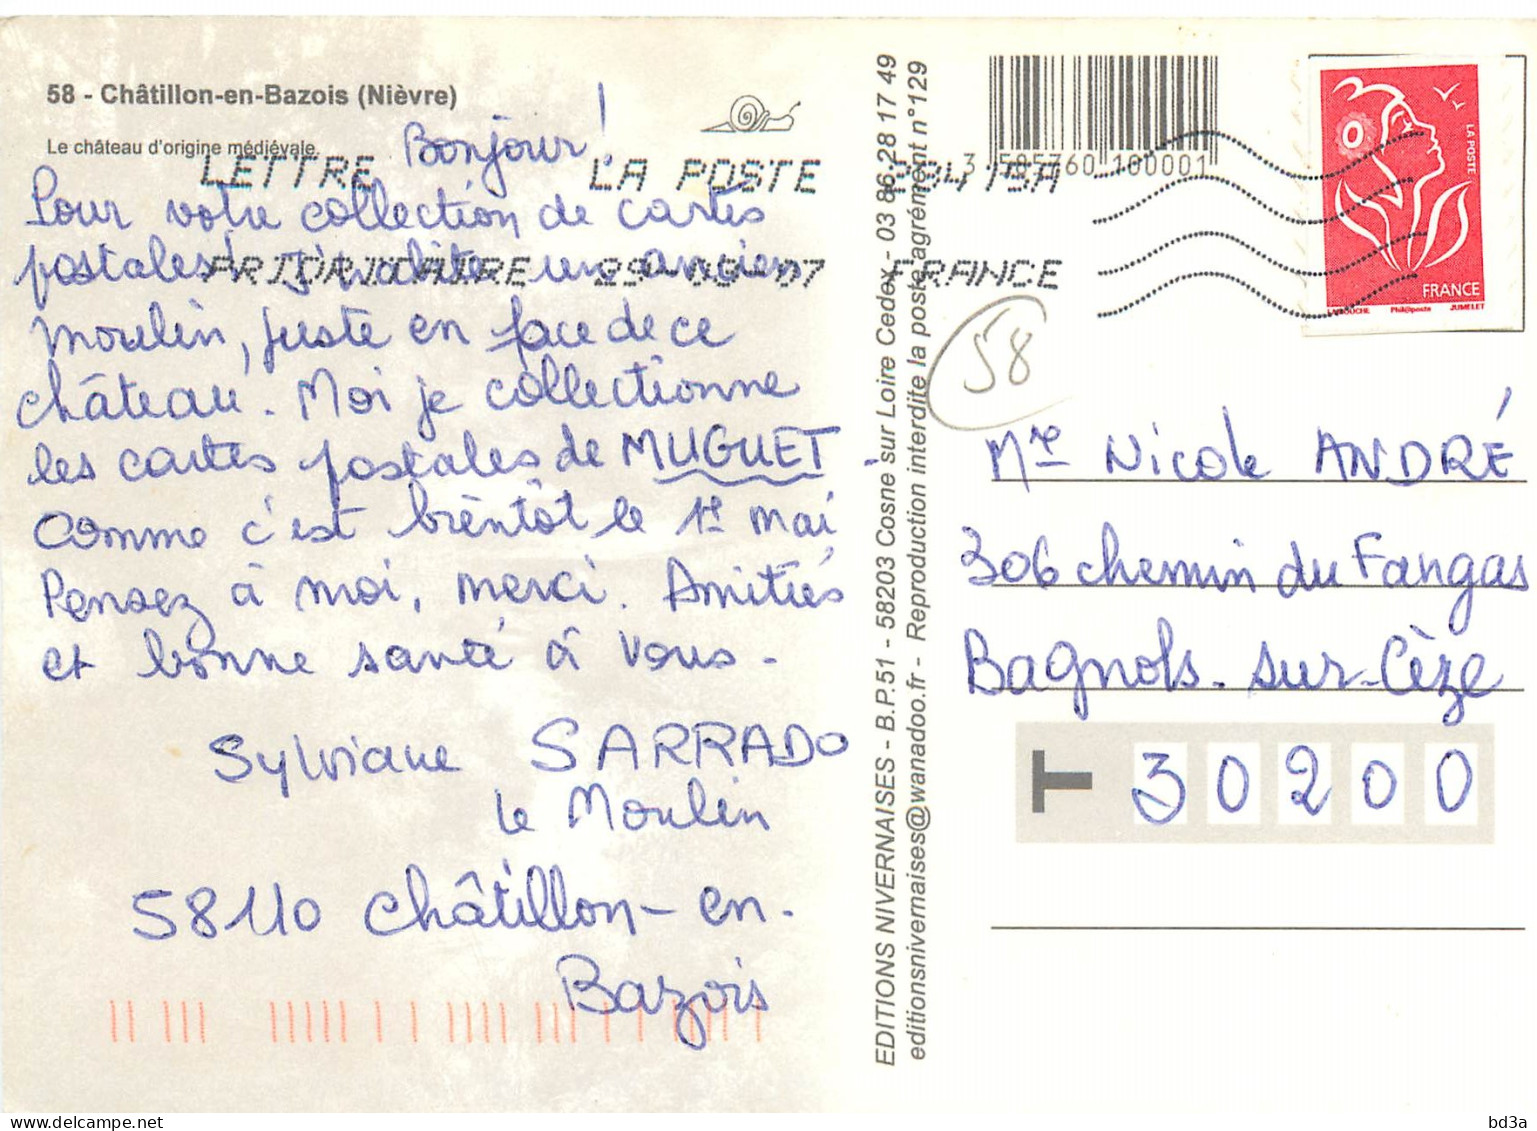 58 - Châtillon-en-Bazois (Nièvre)
Le château d'origine médiévale.
LETTRE LA POSTE
PRIORITAIRE 29-03-07 FRANCE
Bonjour !
Pour votre collection de cartes
postales! J'habite un ancien
moulin, juste en face de ce
château. Moi je collectionne
les cartes postales de MUGUET
comme c'est bientôt le 1er mai
Pensez à moi, merci. Amitiés
et bonne santé à vous.
Sylviane SARRADO
le Moulin
58110 Châtillon-en-
Bazois
EDITIONS NIVERNAISES - B.P.51 - 58203 Cosne sur Loire Cedex - 03 86 28 17 49
editionsnivernaises@wanadoo.fr - Reproduction interdite la poste agrément n°129
3 585760 100001
LA POSTE
FRANCE
LAMOUCHE Phil@poste JUMELET
58
Mme Nicole ANDRÉ
306 chemin du Fangas
Bagnols-sur-Cèze
T 30200
bd3a